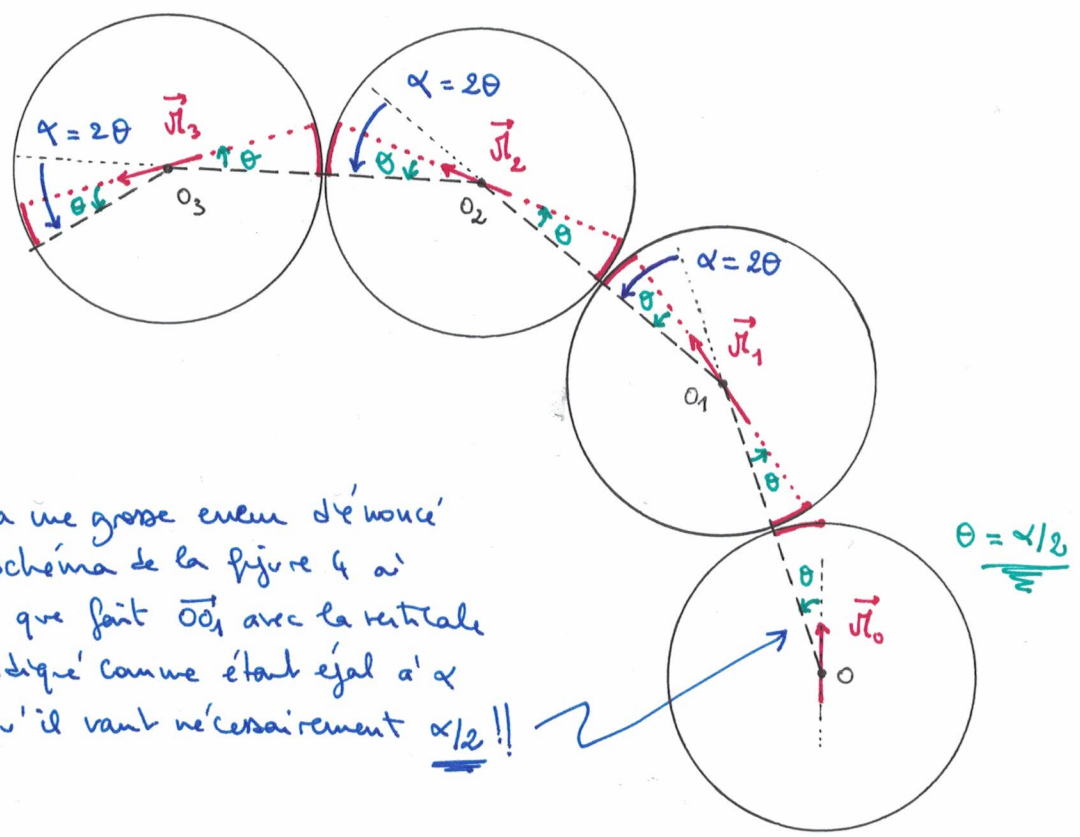 α = 2θ
α = 2θ
r⃗₃
θ
θ
O₃
r⃗₂
θ
O₂
θ
α = 2θ
θ
r⃗₁
O₁
θ
a une grosse erreur d'énoncé
schéma de la figure 4 où
que fait OO₁ avec la verticale
diqué comme étant égal à α
u'il vaut nécessairement α/2 !!
θ = α/2
θ
r⃗₀
O